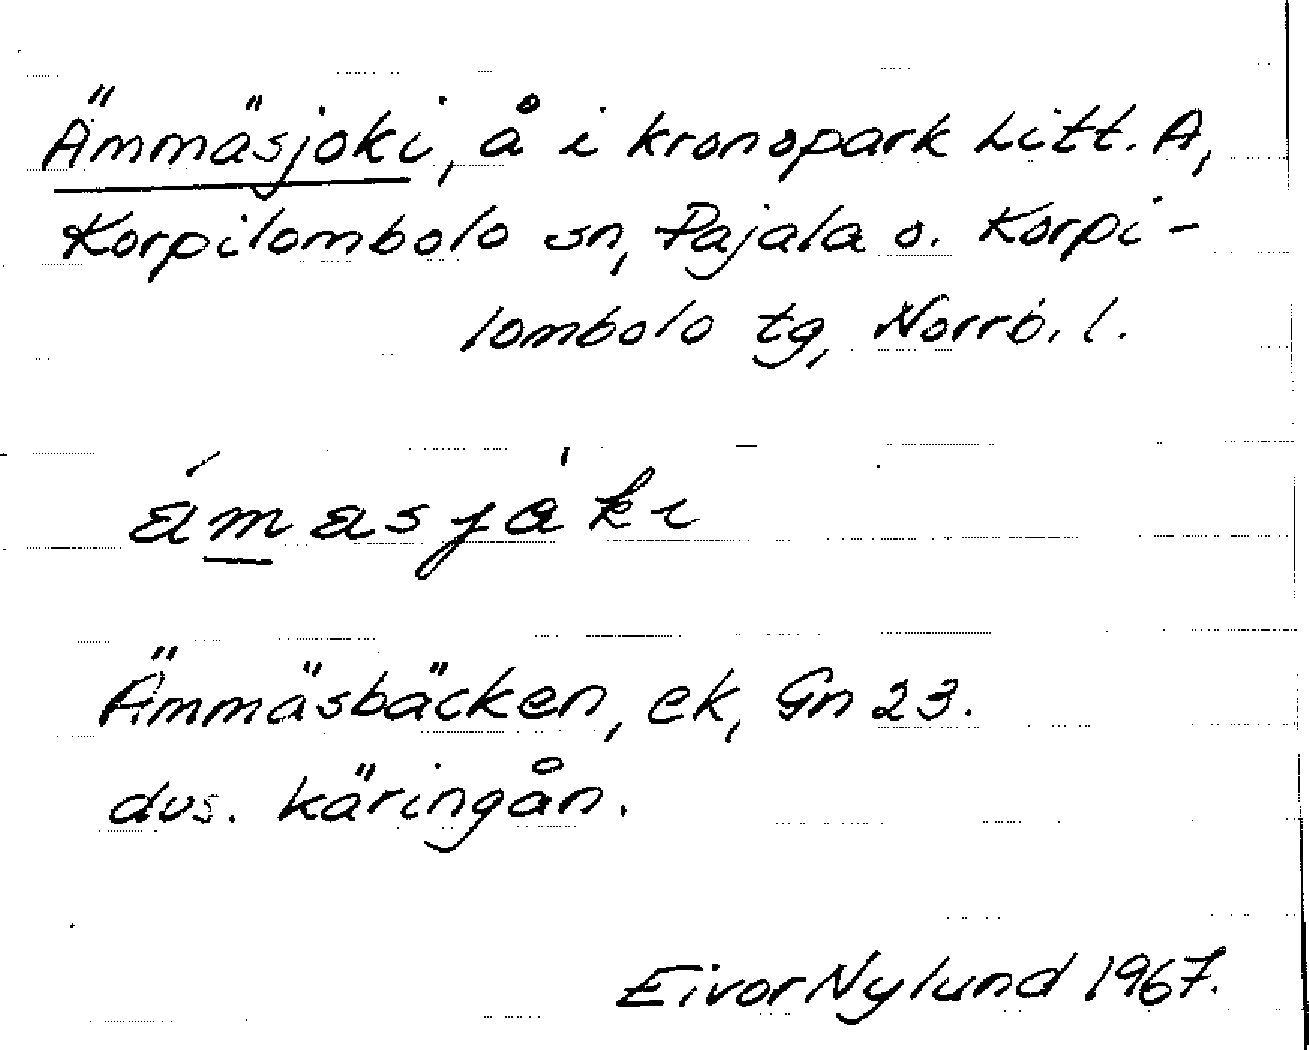 Ämmäsjoki, å i kronopark Litt. A,
Korpilombolo sn, Pajala o. Korpi-
lombolo tg, Norrb. l.
ämasjåki
Ämmäsbäcken, ek, Gn 23.
dvs. käringån.
Eivor Nylund 1967.